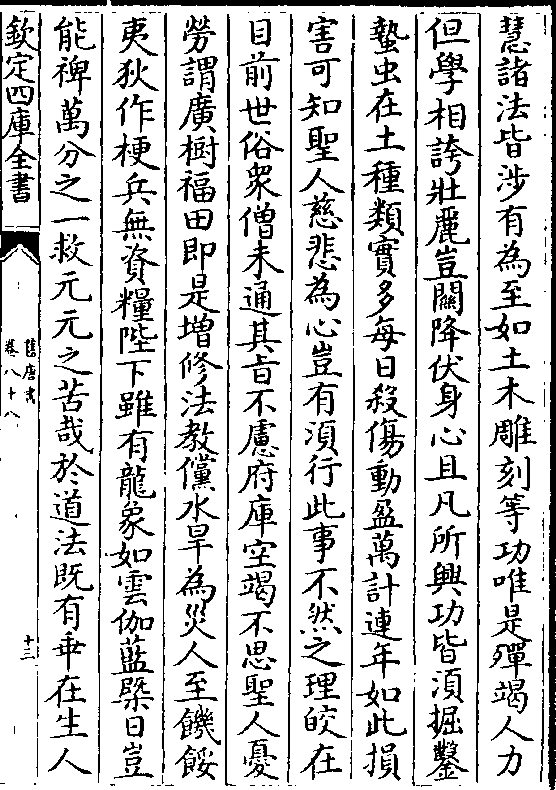 慧諸法皆涉有為至如土木雕刻等功唯是殫竭人力
但學相誇壯麗豈關降伏身心且凡所興功皆湏掘鑿
蟄虫在土種類實多每日殺傷動盈萬計連年如此損
害可知聖人慈悲為心豈有湏行此事不然之理皎在
目前世俗衆僧未通其旨不慮府庫空竭不思聖人憂
勞謂廣樹福田即是增修法教儻水旱為災人至饑餒
夷狄作梗兵無資糧陛下雖有龍象如雲伽藍槩日豈
能裨萬分之一救元元之苦哉於道法既有乖在生人
欽定四庫全書
舊唐書
卷八十八
十三